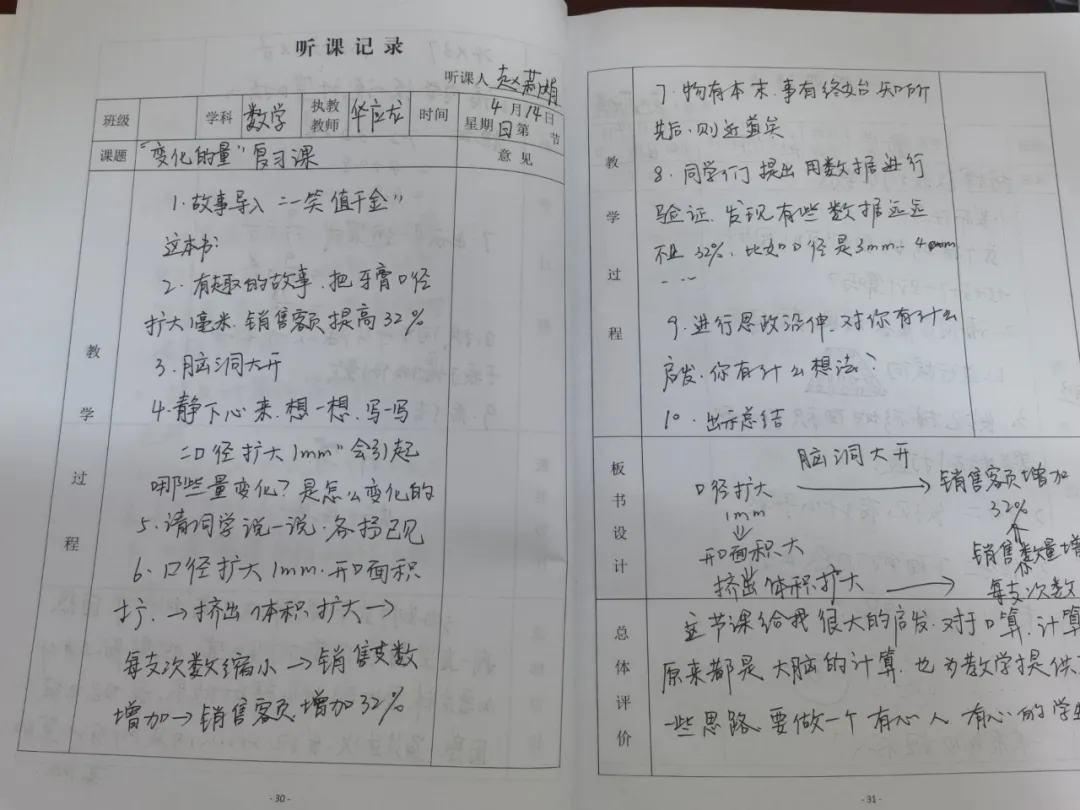 听课记录
听课人 赵莉娟
班级 学科 数学 执教教师 华应龙 时间 4月14日 星期日第 节
课题 "变化的量"复习课 意见
教学过程
1.故事导入"一笑值千金"
这本书:
2.有趣的故事.把牙膏口径
扩大1毫米.销售额提高32%
3.脑洞大开
4.静下心来.想一想.写一写
"口径扩大1mm"会引起
哪些量变化?是怎么变化的
5.请同学说一说.各抒己见
6.口径扩大1mm.开口面积
扩.→挤出体积扩大→
每支次数缩小→销售支数
增加→销售客页增加32%
-30-
教学过程
7.物有本末.事有终始知所
先后.则近道矣
8.同学们提出用数据进行
验证.发现有些数据远远
不止32%.比如口径是3mm. 4mm
……
9.进行思政沿伸.对你有什么
启发.你有什么想法?
10.出示总结
板书设计
脑洞大开
口径扩大 → 销售客页增加
1mm 32%
开口面积大 销售数量增
挤出体积扩大 → 每支次数
总体评价
这节课给我很大的启发.对于口算.计算
原来都是大脑的计算.也为教学提供
一些思路.要做一个有心人 有心的学生
-31-